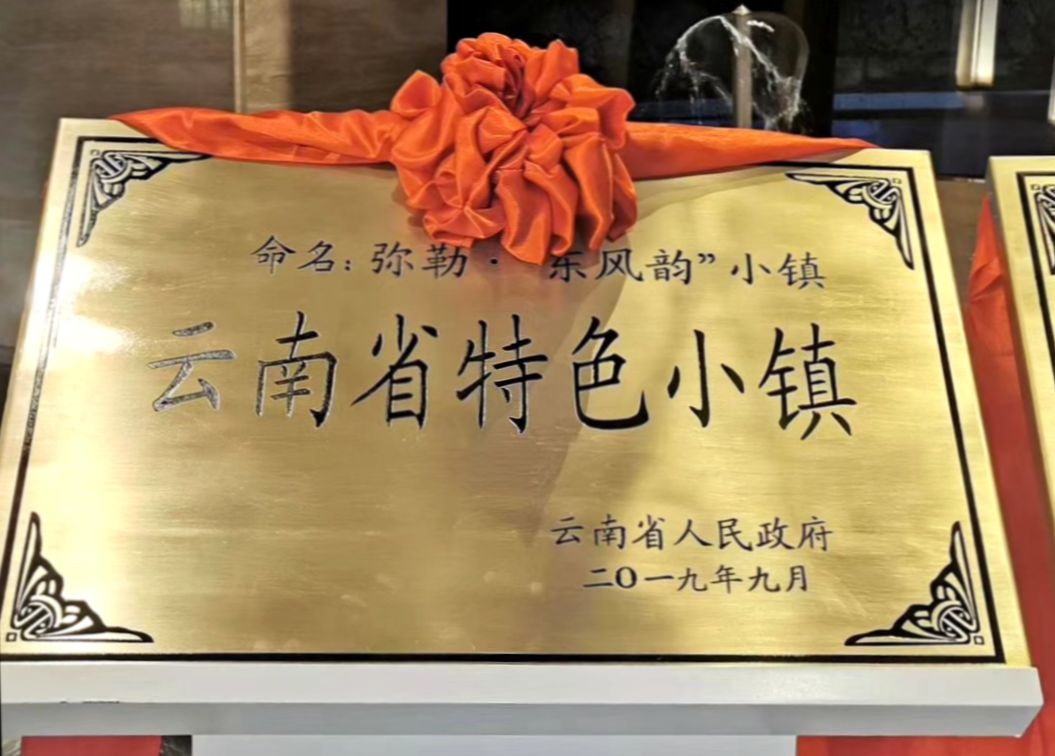 命名：弥勒·“东风韵”小镇
云南省特色小镇
云南省人民政府
二〇一九年九月